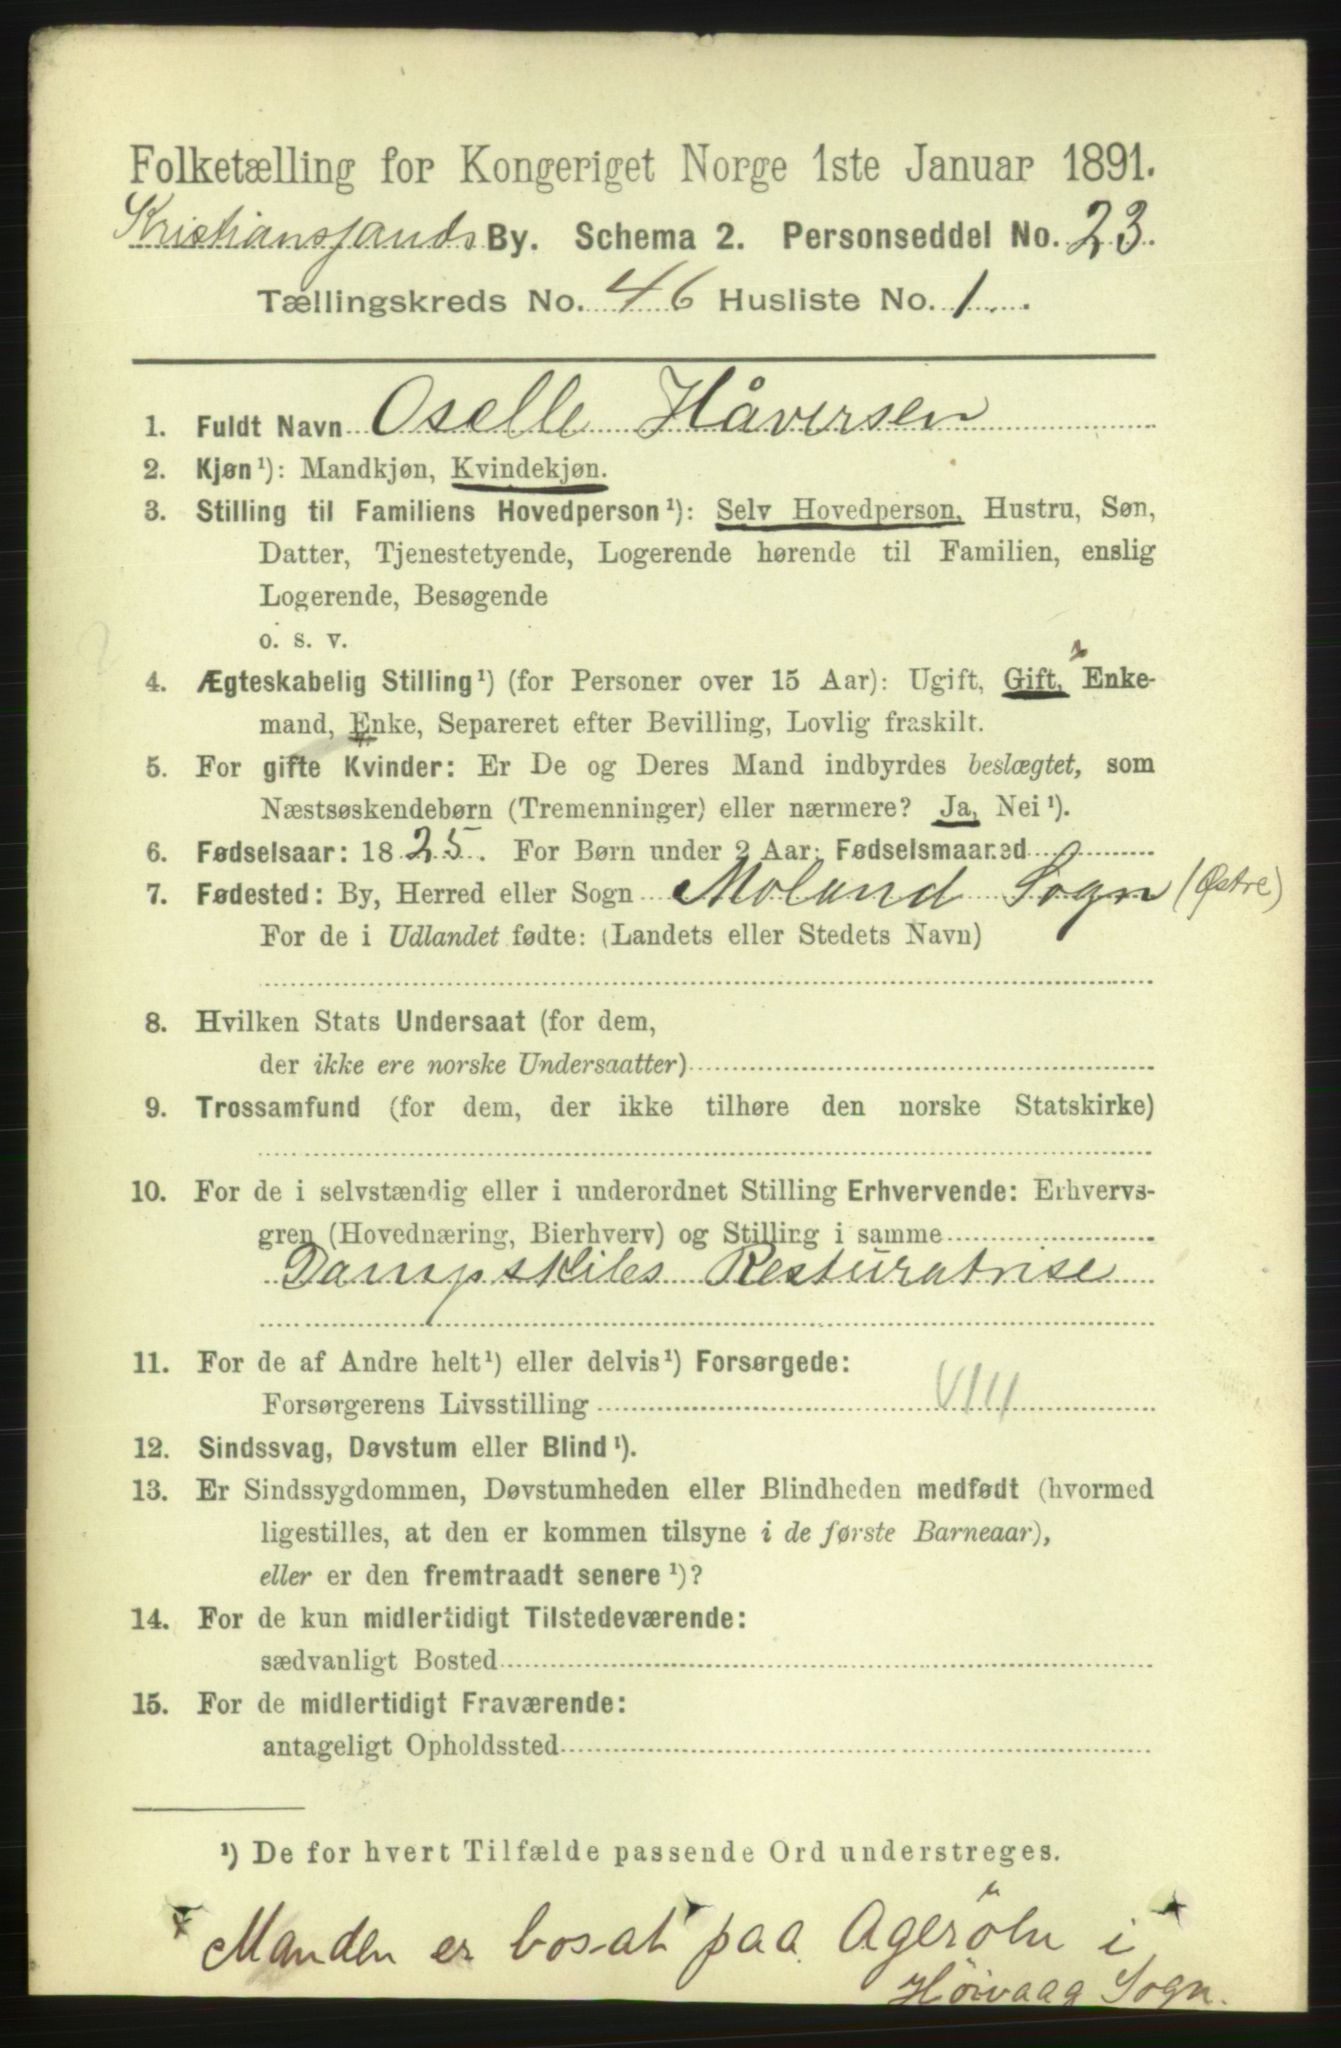 Folketælling for Kongeriget Norge 1ste Januar 1891.
Kristianssands By. Schema 2. Personseddel No. 23.
Tællingskreds No. 46 Husliste No. 1.
1. Fuldt Navn Oselle Håversen
2. Kjøn¹): Mandkjøn, Kvindekjøn.
3. Stilling til Familiens Hovedperson¹): Selv Hovedperson, Hustru, Søn,
Datter, Tjenestetyende, Logerende hørende til Familien, enslig
Logerende, Besøgende
o. s. v.
4. Ægteskabelig Stilling¹) (for Personer over 15 Aar): Ugift, Gift, Enke-
mand, Enke, Separeret efter Bevilling, Lovlig fraskilt.
5. For gifte Kvinder: Er De og Deres Mand indbyrdes beslægtet, som
Næstsøskendebørn (Tremenninger) eller nærmere? Ja, Nei¹).
6. Fødselsaar: 1825. For Børn under 2 Aar: Fødselsmaaned
7. Fødested: By, Herred eller Sogn Moland Sogn (Østre)
For de i Udlandet fødte: (Landets eller Stedets Navn)
8. Hvilken Stats Undersaat (for dem,
der ikke ere norske Undersaatter)
9. Trossamfund (for dem, der ikke tilhøre den norske Statskirke)
10. For de i selvstændig eller i underordnet Stilling Erhvervende: Erhvervs-
gren (Hovednæring, Bierhverv) og Stilling i samme
Dampskibs Resturatrise
11. For de af Andre helt¹) eller delvis¹) Forsørgede:
Forsørgerens Livsstilling VIII
12. Sindssvag, Døvstum eller Blind¹).
13. Er Sindssygdommen, Døvstumheden eller Blindheden medfødt (hvormed
ligestilles, at den er kommen tilsyne i de første Barneaar),
eller er den fremtraadt senere¹)?
14. For de kun midlertidigt Tilstedeværende:
sædvanligt Bosted
15. For de midlertidigt Fraværende:
antageligt Opholdssted
¹) De for hvert Tilfælde passende Ord understreges.
Manden er bosat paa Ageröln i
Höivaag Sogn.